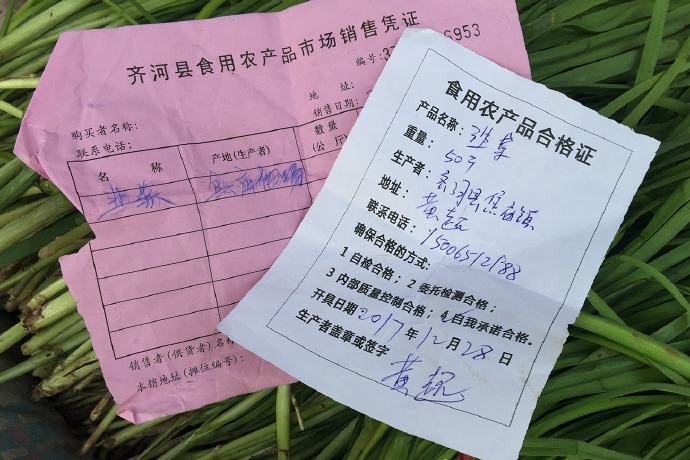 齐河县食用农产品市场销售凭证
编号:3
6953
地 址:
购买者名称:
销售日期:
联系电话:
名 称
产地(生产者)
数量
(公斤
韭菜
销售者(供货者)名称
本销地址(摊位编号):
食用农产品合格证
产品名称: 韭菜
重量: 50斤
生产者: 齐河县
地址: 黄超
联系电话: 15006512988
确保合格的方式:
1 自检合格; 2 委托检测合格;
3 内部质量控制合格; 4 自我承诺合格。
开具日期 2017年12月28日
生产者盖章或签字
黄超